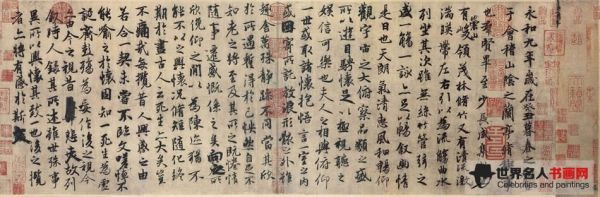 永和九年歲在癸丑暮春之初會
于會稽山陰之蘭亭脩稧事
也羣賢畢至少長咸集此地
有峻領茂林脩竹又有清流激
湍暎帶左右引以為流觴曲水
列坐其次雖無絲竹管弦之
盛一觴一詠亦足以暢叙幽情
是日也天朗氣清惠風和暢仰
觀宇宙之大俯察品類之盛
所以遊目騁懷足以極視聽之
娛信可樂也夫人之相與俯仰
一世或取諸懷抱悟言一室之內
或因寄所託放浪形骸之外雖
趣舍萬殊靜躁不同當其欣
於所遇蹔得於己怏然自足不
知老之將至及其所之既惓情
隨事遷感慨係之矣向之所
欣俛仰之閒以為陳迹猶不
能不以之興懷況脩短隨化終
期於盡古人云死生亦大矣豈
不痛哉每攬昔人興感之由
若合一契未嘗不臨文嗟悼不
能喻之於懷固知一死生為虛
誕齊彭殤為妄作後之視今
亦由今之視昔悲夫故列
叙時人錄其所述雖世殊事
異所以興懷其致一也後之攬
者亦將有感於斯文
世界名人书画网
Celebrities and paintings